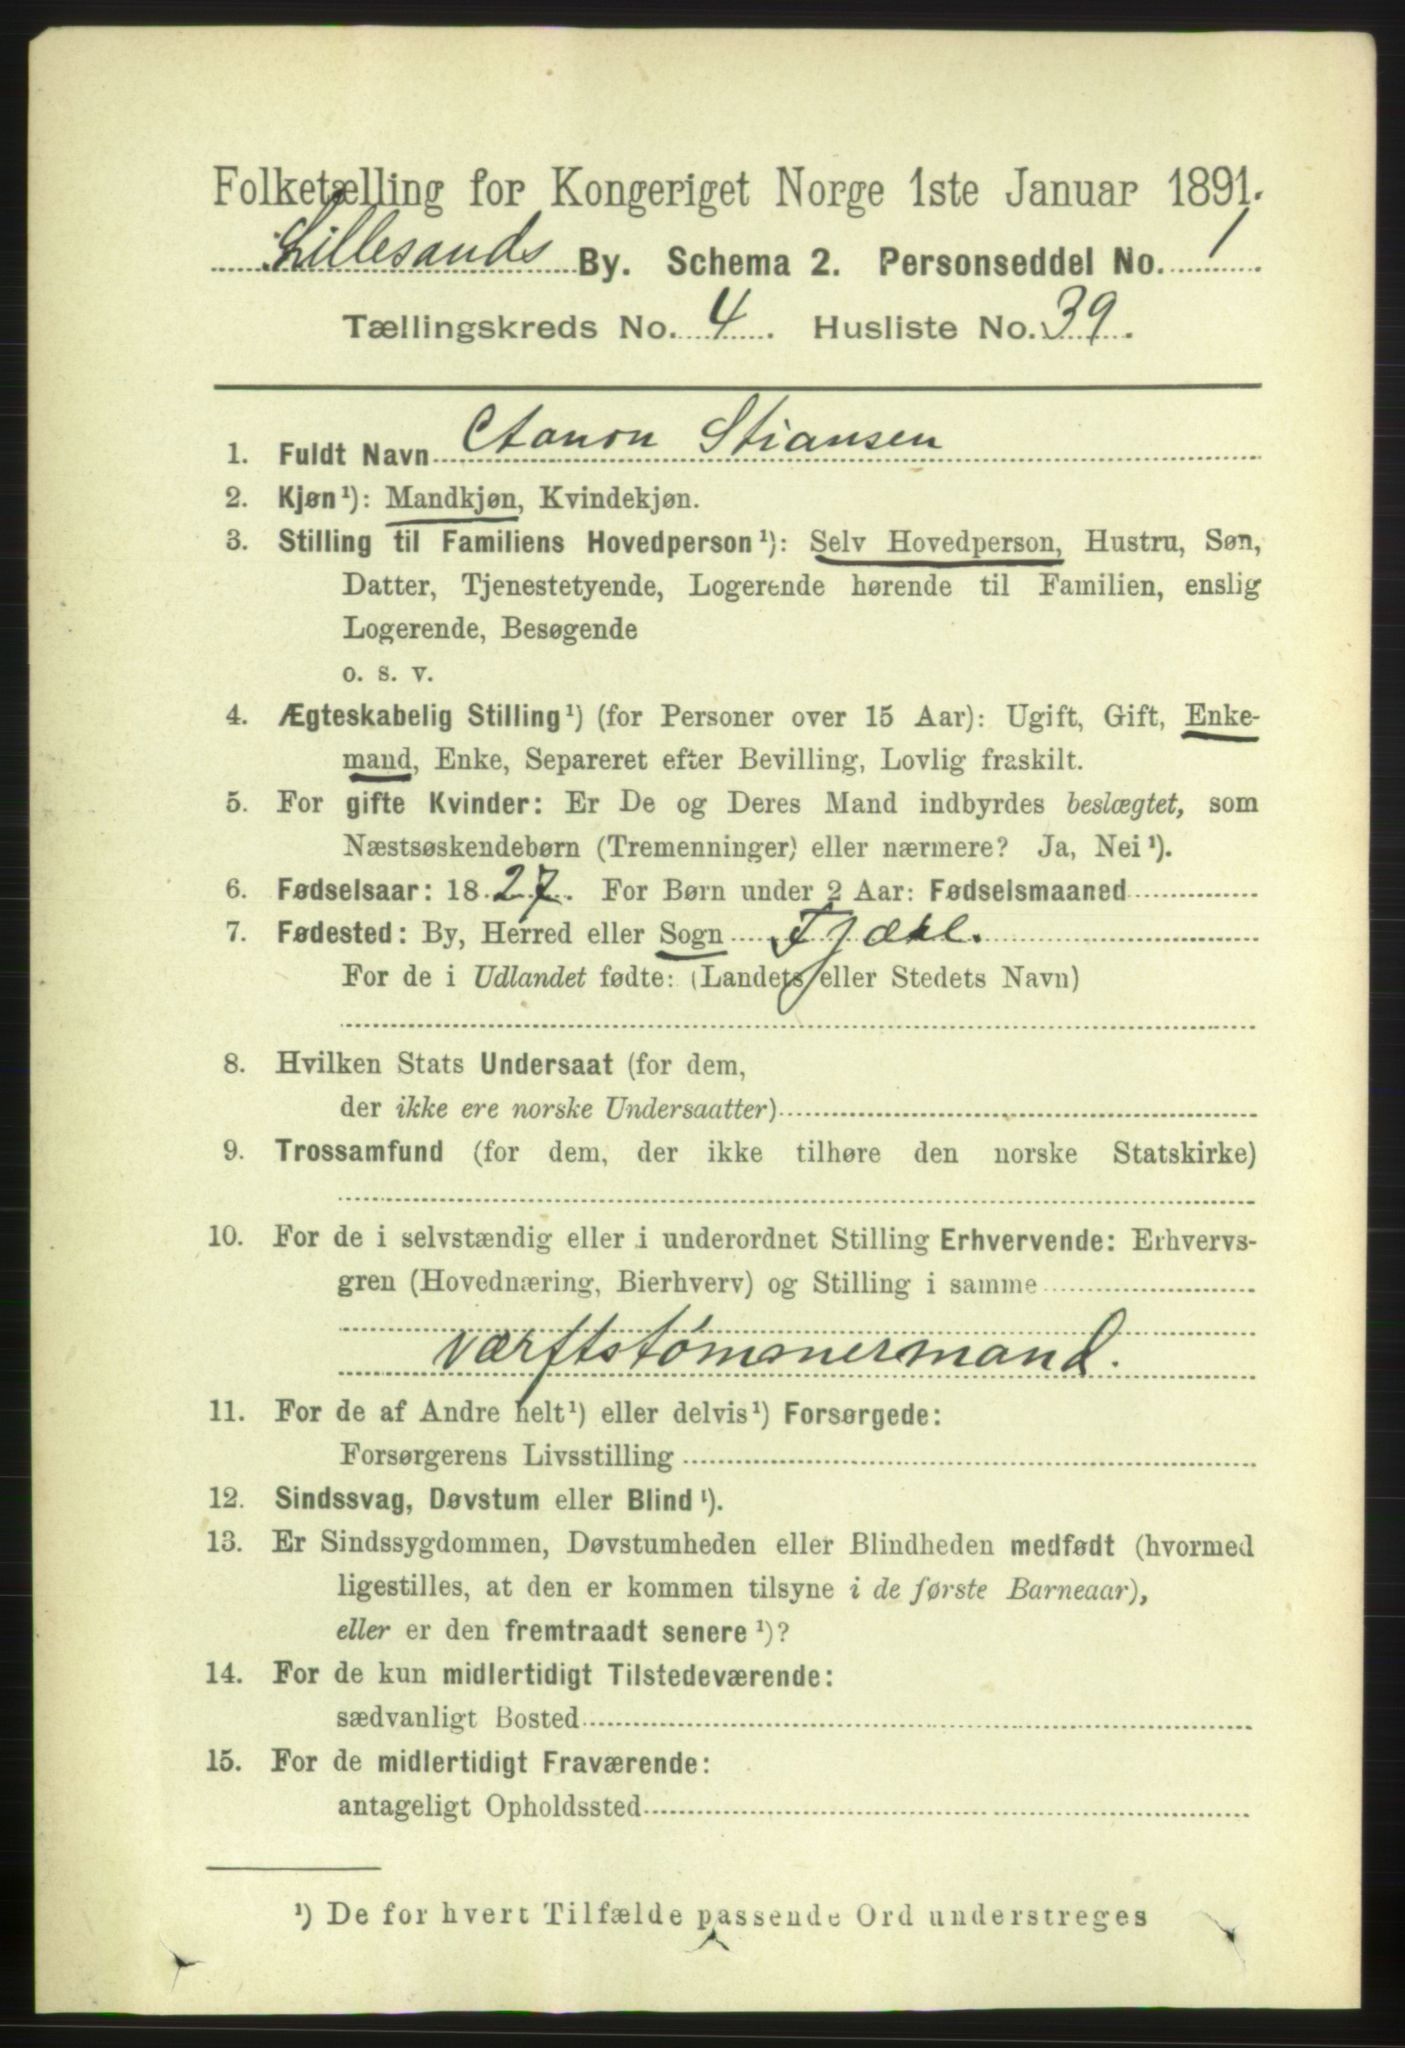 Folketælling for Kongeriget Norge 1ste Januar 1891.
Lillesands By. Schema 2. Personseddel No. 1
Tællingskreds No. 4. Husliste No. 39.
1. Fuldt Navn Aanon Stiansen
2. Kjøn¹): Mandkjøn, Kvindekjøn.
3. Stilling til Familiens Hovedperson¹): Selv Hovedperson, Hustru, Søn,
Datter, Tjenestetyende, Logerende hørende til Familien, enslig
Logerende, Besøgende
o. s. v.
4. Ægteskabelig Stilling¹) (for Personer over 15 Aar): Ugift, Gift, Enke-
mand, Enke, Separeret efter Bevilling, Lovlig fraskilt.
5. For gifte Kvinder: Er De og Deres Mand indbyrdes beslægtet, som
Næstsøskendebørn (Tremenninger) eller nærmere? Ja, Nei¹).
6. Fødselsaar: 1827. For Børn under 2 Aar: Fødselsmaaned
7. Fødested: By, Herred eller Sogn Fjære.
For de i Udlandet fødte: (Landets eller Stedets Navn)
8. Hvilken Stats Undersaat (for dem,
der ikke ere norske Undersaatter)
9. Trossamfund (for dem, der ikke tilhøre den norske Statskirke)
10. For de i selvstændig eller i underordnet Stilling Erhvervende: Erhvervs-
gren (Hovednæring, Bierhverv) og Stilling i samme
Værftstømmermand.
11. For de af Andre helt¹) eller delvis¹) Forsørgede:
Forsørgerens Livsstilling
12. Sindssvag, Døvstum eller Blind¹).
13. Er Sindssygdommen, Døvstumheden eller Blindheden medfødt (hvormed
ligestilles, at den er kommen tilsyne i de første Barneaar),
eller er den fremtraadt senere¹)?
14. For de kun midlertidigt Tilstedeværende:
sædvanligt Bosted
15. For de midlertidigt Fraværende:
antageligt Opholdssted
¹) De for hvert Tilfælde passende Ord understreges